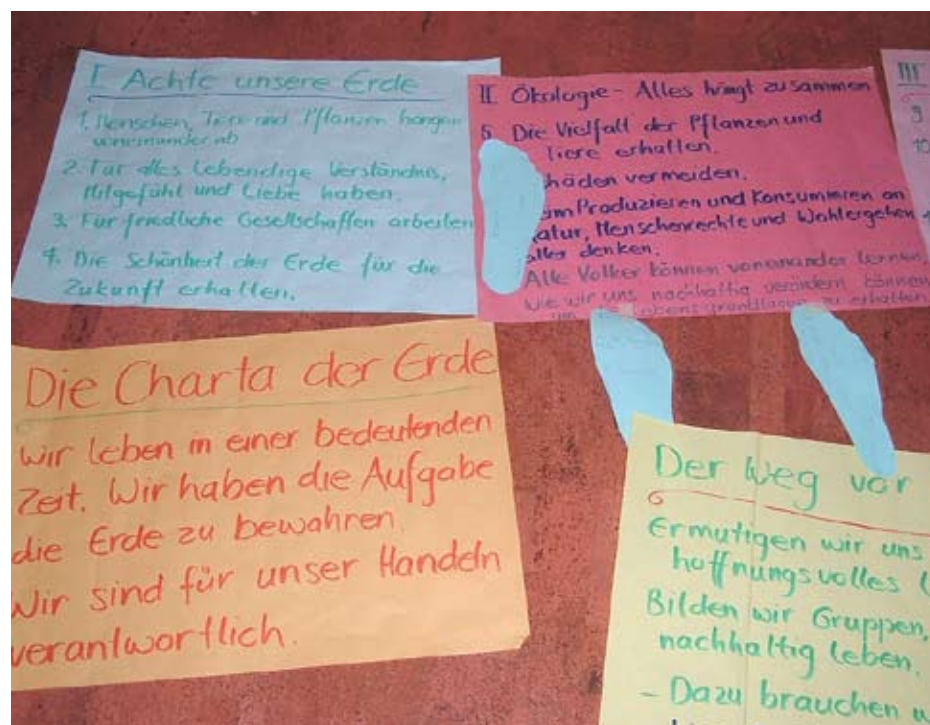 I Achte unsere Erde
1. Menschen, Tiere und Pflanzen hängen
voneinander ab
2. Für alles Lebendige Verständnis,
Mitgefühl und Liebe haben.
3. Für friedliche Gesellschaften arbeiten
4. Die Schönheit der Erde für die
Zukunft erhalten.
II Ökologie - Alles hängt zusammen
5. Die Vielfalt der Pflanzen und
Tiere erhalten.
häden vermeiden.
m Produzieren und Konsumieren an
atur, Menschenrechte und Wohlergehen
aller denken.
Alle Völker können voneinander lernen,
wie wir uns nachhaltig verändern können
um die Lebensgrundlagen zu erhalten
III
9
10
Die Charta der Erde
Wir leben in einer bedeutenden
Zeit. Wir haben die Aufgabe
die Erde zu bewahren.
Wir sind für unser Handeln
verantwortlich.
Der Weg vor
Ermutigen wir uns
hoffnungsvolles
Bilden wir Gruppen,
nachhaltig leben.
- Dazu brauchen